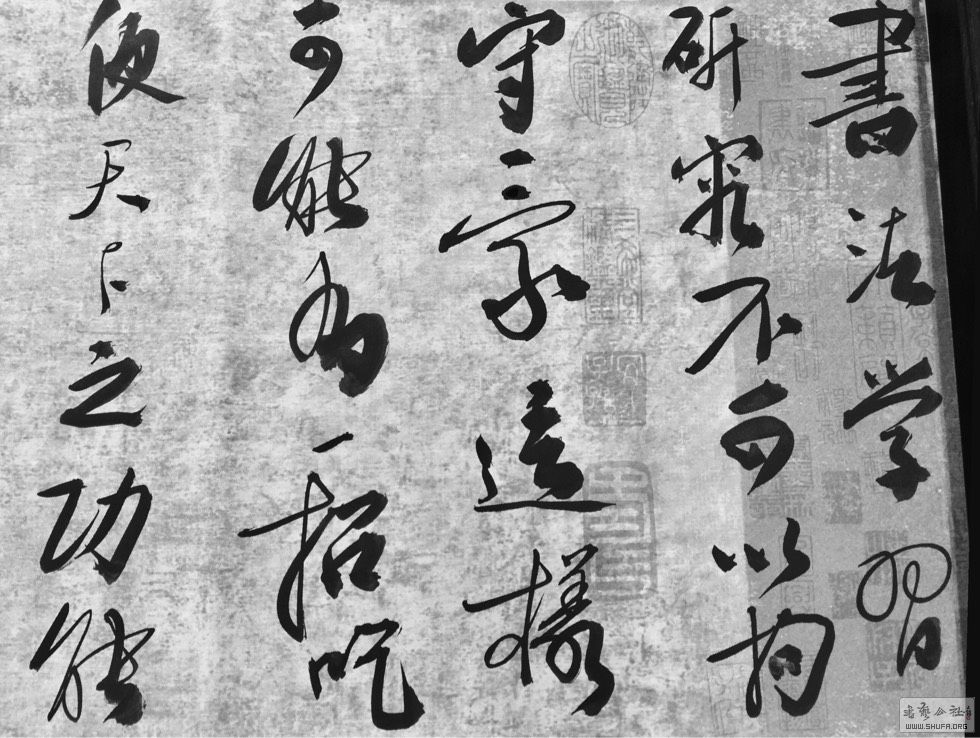 書法学習
研究不可以拘
守一家這樣
可能為一招吃
便天下之功能
書藝公社
WWW.SHUFA.ORG